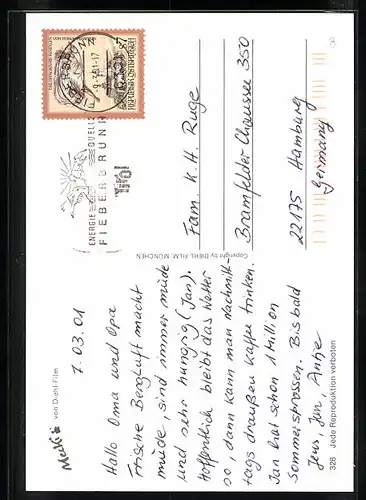 Mecki von Diehl-Film
7.03.01
Hallo Oma und Opa
Frische Bergluft macht
müde, sind immer müde
und sehr hungrig (Jan).
Hoffentlich bleibt das Wetter
so, dann kann man Nachmit-
tags draußen Kaffee trinken.
Jan hat schon 1 Million
Sommersprossen. Bis bald
Jens, Jan, Antje
328 Jede Reproduktion verboten
Copyright by DIEHL-FILM, MÜNCHEN
ENERGIE QUELLE
FIEBERBRUNN
REPUBLIK ÖSTERREICH
S7
Fam. K. H. Ruge
Bramfelder Chaussee 350
22175 Hamburg
Germany